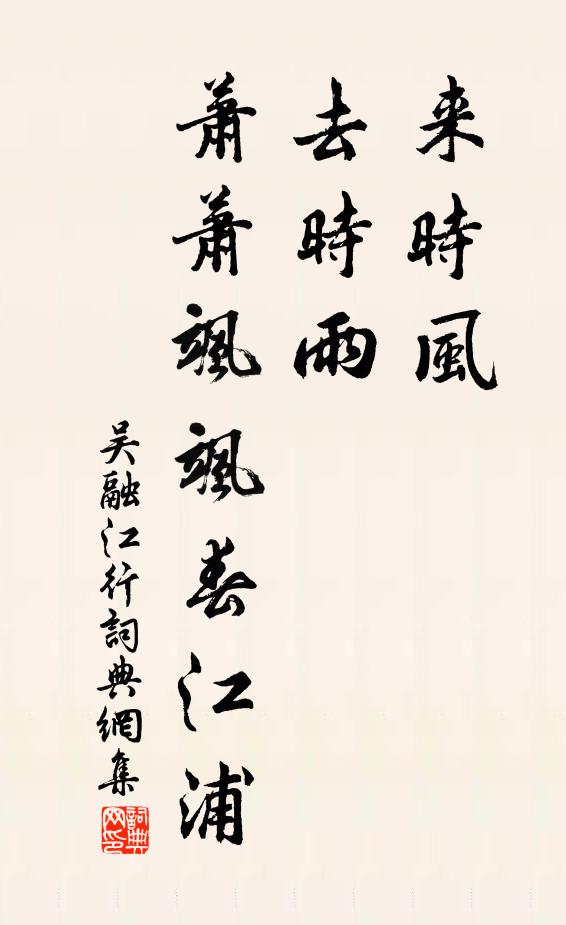 来時風
去時雨
蕭蕭颯颯春江浦
吴融江行詞典網集
詞典网印